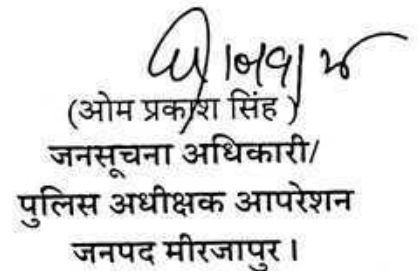 (ओम प्रकाश सिंह )
जनसूचना अधिकारी/
पुलिस अधीक्षक आपरेशन
जनपद मीरजापुर।